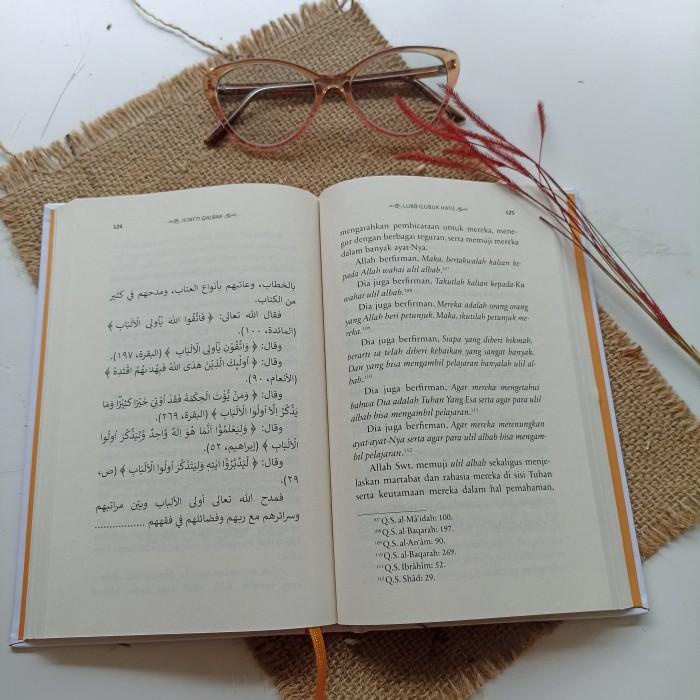 124
ISTAFTI QALBAK
بالخطاب، وعاتبهم بأنواع العتاب، ومدحهم في كثير
من الكتاب.
فقال الله تعالى: ﴿ فَاتَّقُوا اللّٰهَ يٰٓاُولِى الْاَلْبَابِ ﴾
(المائدة، ١٠٠).
وقال: ﴿ وَاتَّقُوْنِ يٰٓاُولِى الْاَلْبَابِ ﴾ (البقرة، ١٩٧).
وقال: ﴿ اُولٰۤىِٕكَ الَّذِيْنَ هَدَى اللّٰهُ فَبِهُدٰىهُمُ اقْتَدِهْ ﴾
(الأنعام، ٩٠).
وقال: ﴿ وَمَنْ يُّؤْتَ الْحِكْمَةَ فَقَدْ اُوْتِيَ خَيْرًا كَثِيْرًا وَمَا
يَذَّكَّرُ اِلَّآ اُولُوا الْاَلْبَابِ ﴾ (البقرة، ٢٦٩).
وقال: ﴿ وَلِيَعْلَمُوْٓا اَنَّمَا هُوَ اِلٰهٌ وَّاحِدٌ وَّلِيَذَّكَّرَ اُولُوا
الْاَلْبَابِ ﴾ (إبراهيم، ٥٢).
وقال: ﴿ لِّيَدَّبَّرُوْٓا اٰيٰتِهٖ وَلِيَتَذَكَّرَ اُولُوا الْاَلْبَابِ ﴾ (ص،
٢٩).
فمدح الله تعالى أولى الألباب وبيّن مراتبهم
وسرائرهم مع ربهم وفضائلهم في فقههم ................
LUBB (LUBUK HATI)
125
mengarahkan pembicaraan untuk mereka, mene-
gur dengan berbagai teguran, serta memuji mereka
dalam banyak ayat-Nya.
Allah berfirman, Maka, bertakwalah kalian ke-
pada Allah wahai ulil albab.107
Dia juga berfirman, Takutlah kalian kepada-Ku
wahai ulil albab.108
Dia juga berfirman, Mereka adalah orang-orang
yang Allah beri petunjuk. Maka, ikutilah petunjuk me-
reka.109
Dia juga berfirman, Siapa yang diberi hikmah,
berarti ia telah diberi kebaikan yang sangat banyak.
Dan yang bisa mengambil pelajaran hanyalah ulil al-
bab.110
Dia juga berfirman, Agar mereka mengetahui
bahwa Dia adalah Tuhan Yang Esa serta agar para ulil
albab bisa mengambil pelajaran.111
Dia juga berfirman, Agar mereka merenungkan
ayat-ayat-Nya serta agar para ulil albab bisa mengam-
bil pelajaran.112
Allah Swt. memuji ulil albab sekaligus menje-
laskan martabat dan rahasia mereka di sisi Tuhan
serta keutamaan mereka dalam hal pemahaman,
107 Q.S. al-Mâ'idah: 100.
108 Q.S. al-Baqarah: 197.
109 Q.S. al-An'âm: 90.
110 Q.S. al-Baqarah: 269.
111 Q.S. Ibrâhîm: 52.
112 Q.S. Shâd: 29.